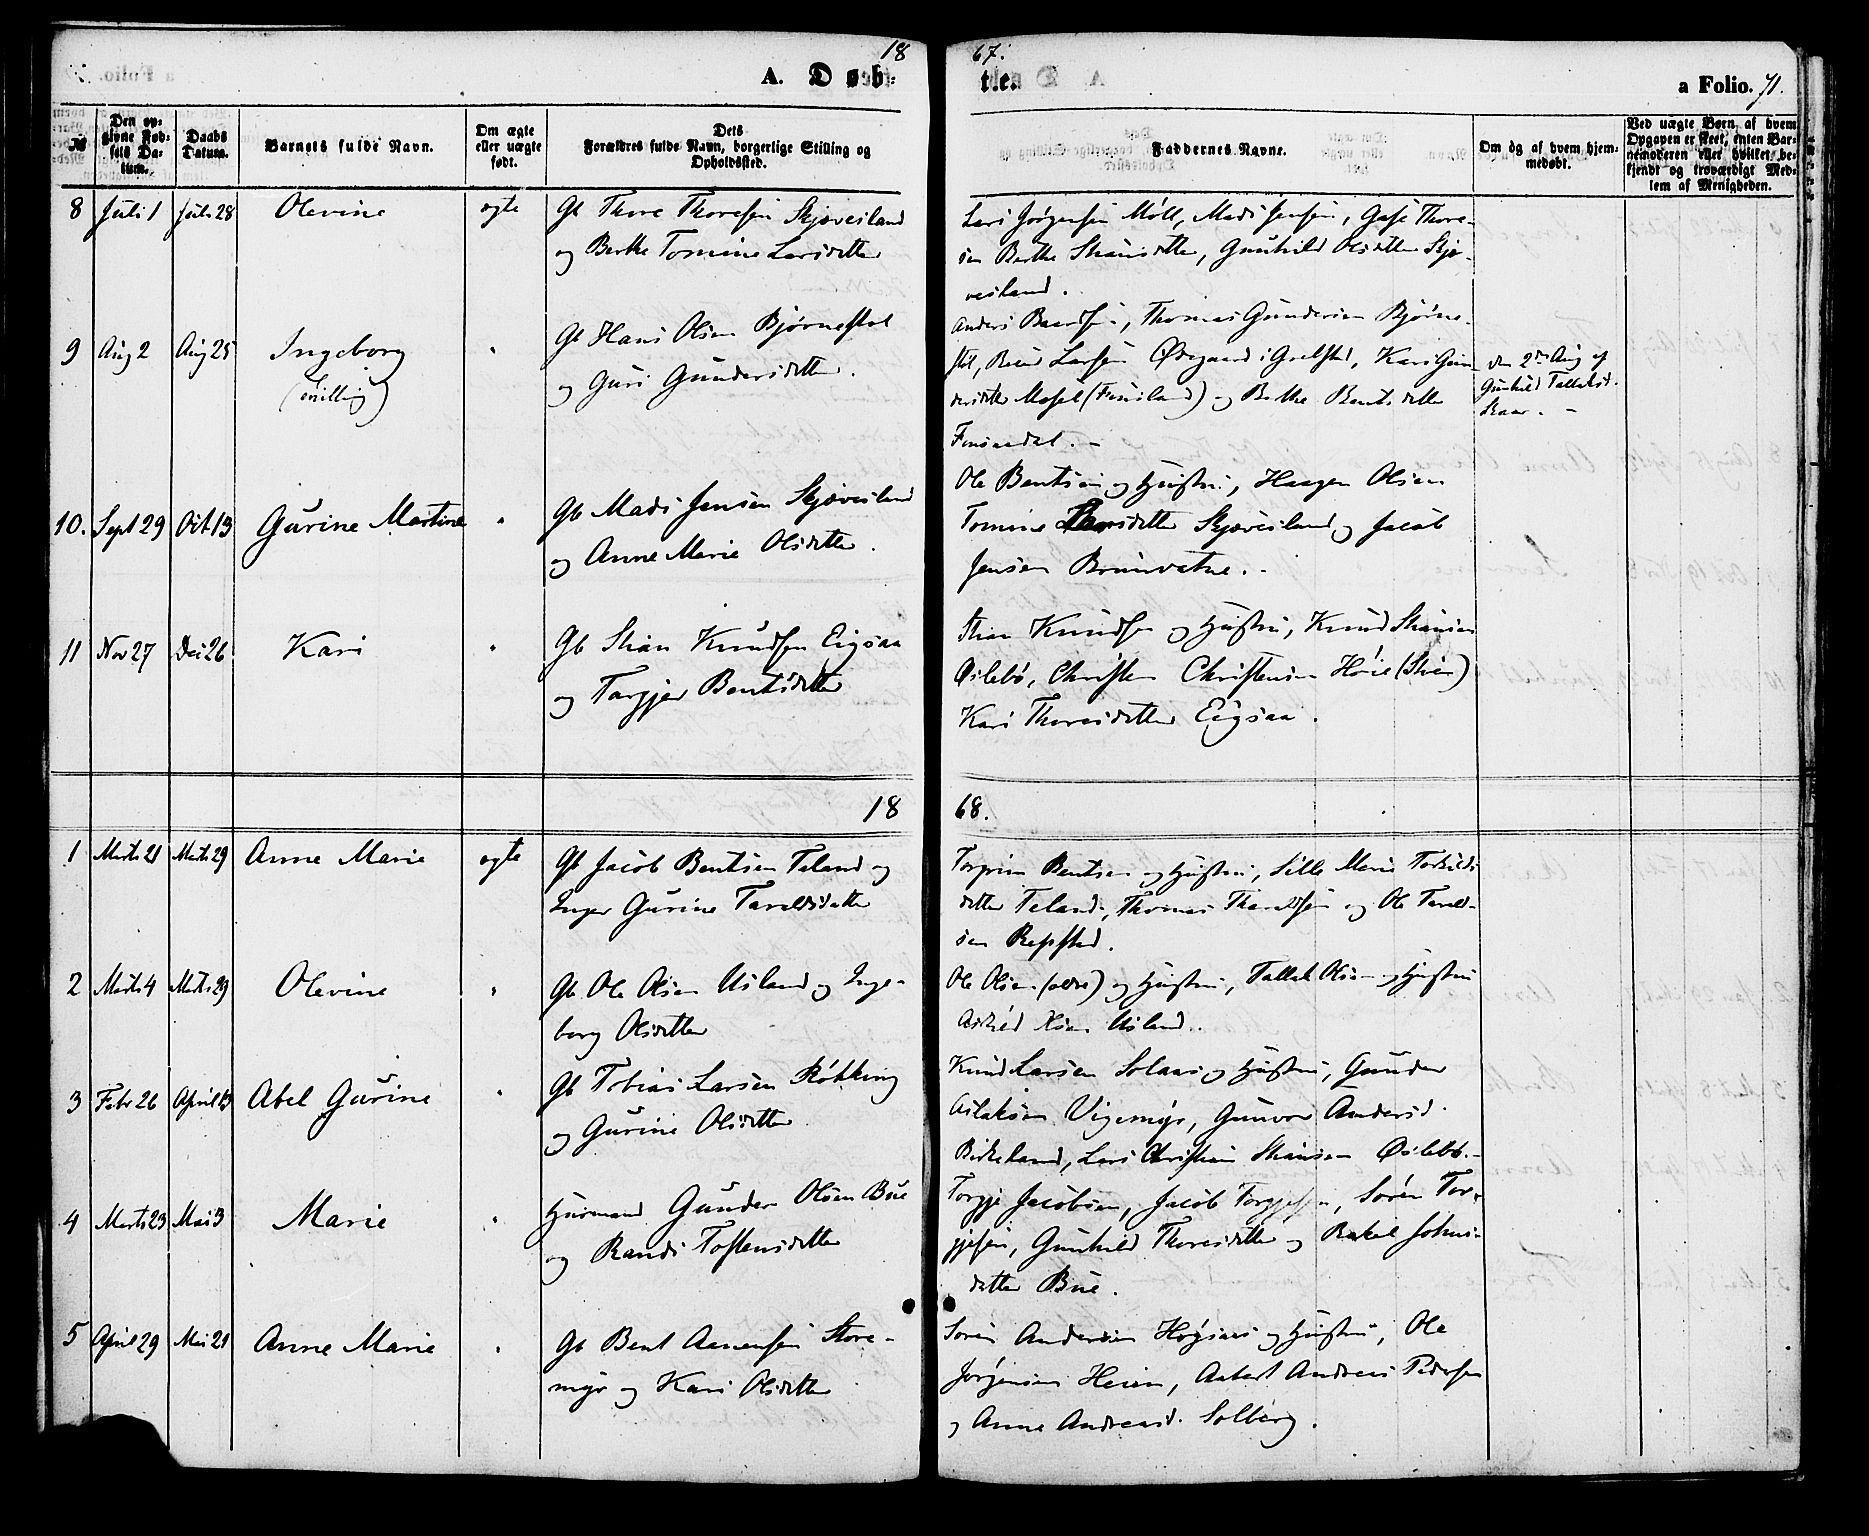 18 67.
A. Døbte. a Folio. 71.
№ Den opgivne Fødsels Datum. Daabs Datum. Barnets fulde Navn. Om ægte eller uægte født. Dets Forældres fulde Navn, borgerlige Stilling og Opholdssted. Faddernes Navne. Om og af hvem hjemmedøbt. Ved uægte Børn, af hvem Opgaven er skeet, enten Barnemoderen eller hvilket bekjendt og troværdigt Medlem af Menigheden.
8 Juli 1 Juli 28 Olevine ægte Gb Thore Thoresen Skjævesland
og Berthe Tomine Larsdatter
Lars Jørgensen Møll, Mads Jensen, Thore-
sen Berthe Stiansdatter, Gunhild Olsdatter Skjæ-
vesland.
9 Aug 2 Aug 25 Ingeborg " Gb Hans Olsen Bjørnestøl
(tvilling) og Guri Gundersdatter.
Anders Baardsen, Thomas Gundersen Bjørne-
støl, Larsen Ødegaard i Grelstad, Kari Gun-
dersdatter (Finsland) og Berthe Bentsdatter
den 2den Aug af
Gunhild Tallaksd.
Skaar. -
10. Sept 29 Oct 13 Gurine Martine " Gb Mads Jensen Skjævesland
og Anne Marie Olsdatter.
Ole Bentsen og Hustru, Haagen Olsen
Tomine Larsdatter Skjævesland og Jacob
Jensen Brunvatne. -
11 Nov 27 Dec 26 Kari " Gb Stian Knudsen Eigsaa
og Targjer Bentsdatter
Stian Knudsen og Hustru, Knud Stiansen
Øslebø, Christen Christensen Høie
Kari Thoresdatter Eigsaa.
18 68.
1 Marts 21 Marts 29 Anne Marie ægte Gb Jacob Bentsen Faland og
Inger Gurine Taraldsdatter
Torgrim Bentsen og Hustru, Sille Marie Torkilds-
datter Faland, Thomas Tharaldsen og Ole Tarald-
sen Repstad.
2 Marts 4 Marts 29 Olevine " Gb Ole Olsen Usland og Inge-
borg Olsdatter
Ole Olsen (ældre) og Hustru, Tallak Olsen og Hustru
Usland.
3 Febr 26 April 13 Abel Gurine " Gb Tobias Larsen Røkking
og Gurine Olsdatter
Knud Larsen Solaas og Hustru, Gunder
Aslaksen Vigemyr, Gunvor Andersd.
Birkeland, Lars Christian Stiansen Øslebø. -
4 Marts 23 Mai 3 Marie " Husmand Gunder Olsen Bue
og Randi Tostensdatter
Torgje Jacobsen, Jacob Torgjesen, Søren Tor-
gjesen, Gunhild Thoresdatter og Rakel Johns-
datter Bue.
5 April 29 Mai 21 Anne Marie " Gb Bent Aanensen Store-
myr og Kari Olsdatter
Søren Andersen Høysaas og Hustru, Ole
Jørgensen, Andreas Pedersen
og Anne Andreasd. Solberg.